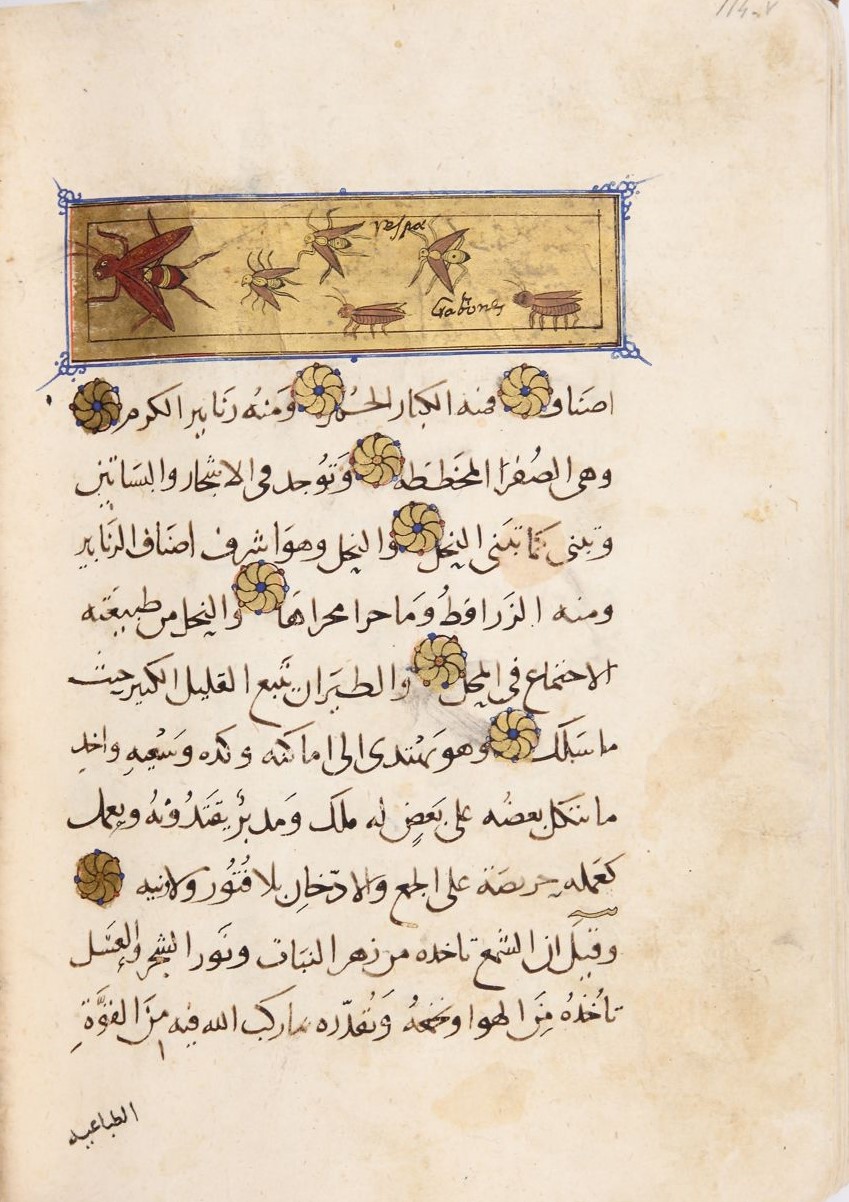 114-v
vespa
Gabones
اصناف فمنه الكبار الحمر ومنه زنابير الكرم
وهى الصفرا المخططه وتوجد فى الاشجار والبساتين
وتبنى كما تبنى النحل والنحل وهو اشرف اصناف الزنابير
ومنه الزراقط وما جرا مجراها والنحل من طبيعته
الاجتماع فى المحل والطيران يتبع القليل الكثير حيث
ما سلك وهو يهتدى الى اماكنه وكده وسعيه واخد
ما بعضه على بعض له ملك ومدبر يقتدونه ويعمل
كعمله حريصة على الجمع والادخان بلا فتور ولا ونيه
وقيل ان الشمع تاخده من زهر النبات ونور الشجر والعسل
تاخده من الهوا وتقدره ما ركب الله فيه من القوة
الطباعيه